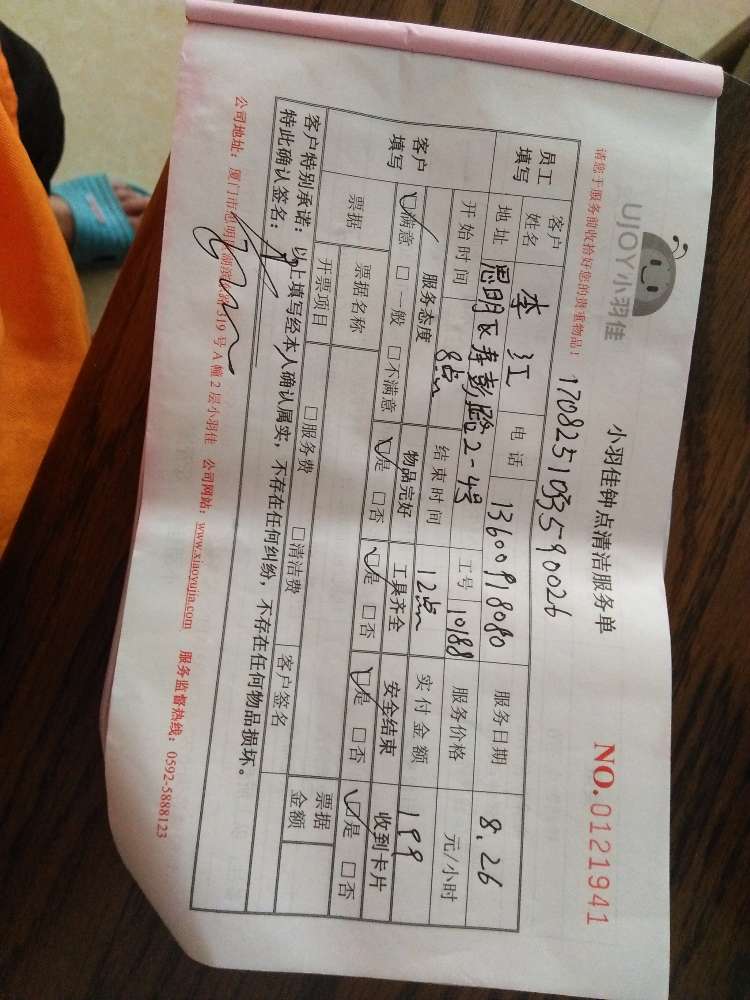 UJOY小羽佳
小羽佳钟点清洁服务单
NO.0121941
请您于服务前收拾好您的贵重物品!
170825103590026
员工填写 客户姓名 李江 电话 13600918080 服务日期 8.26
地址 思明区寿彭路2-4号 工号 10188 服务价格 元/小时
客户填写 开始时间 8点 结束时间 12点 实付金额 199
服务态度 物品完好 工具齐全 安全结束 收到卡片
☑满意 □一般 □不满意 ☑是 □否 ☑是 □否 ☑是 □否 ☑是 □否
票据 票据名称 票据金额
开票项目 □服务费 □清洁费 客户签名
客户特别承诺:以上填写经本人确认属实,不存在任何纠纷,不存在任何物品损坏。
特此确认签名:
公司地址:厦门市思明区湖滨 319号A幢2层小羽佳 公司网站:www.xiaoyujia.com 服务监督热线:0592-5888123